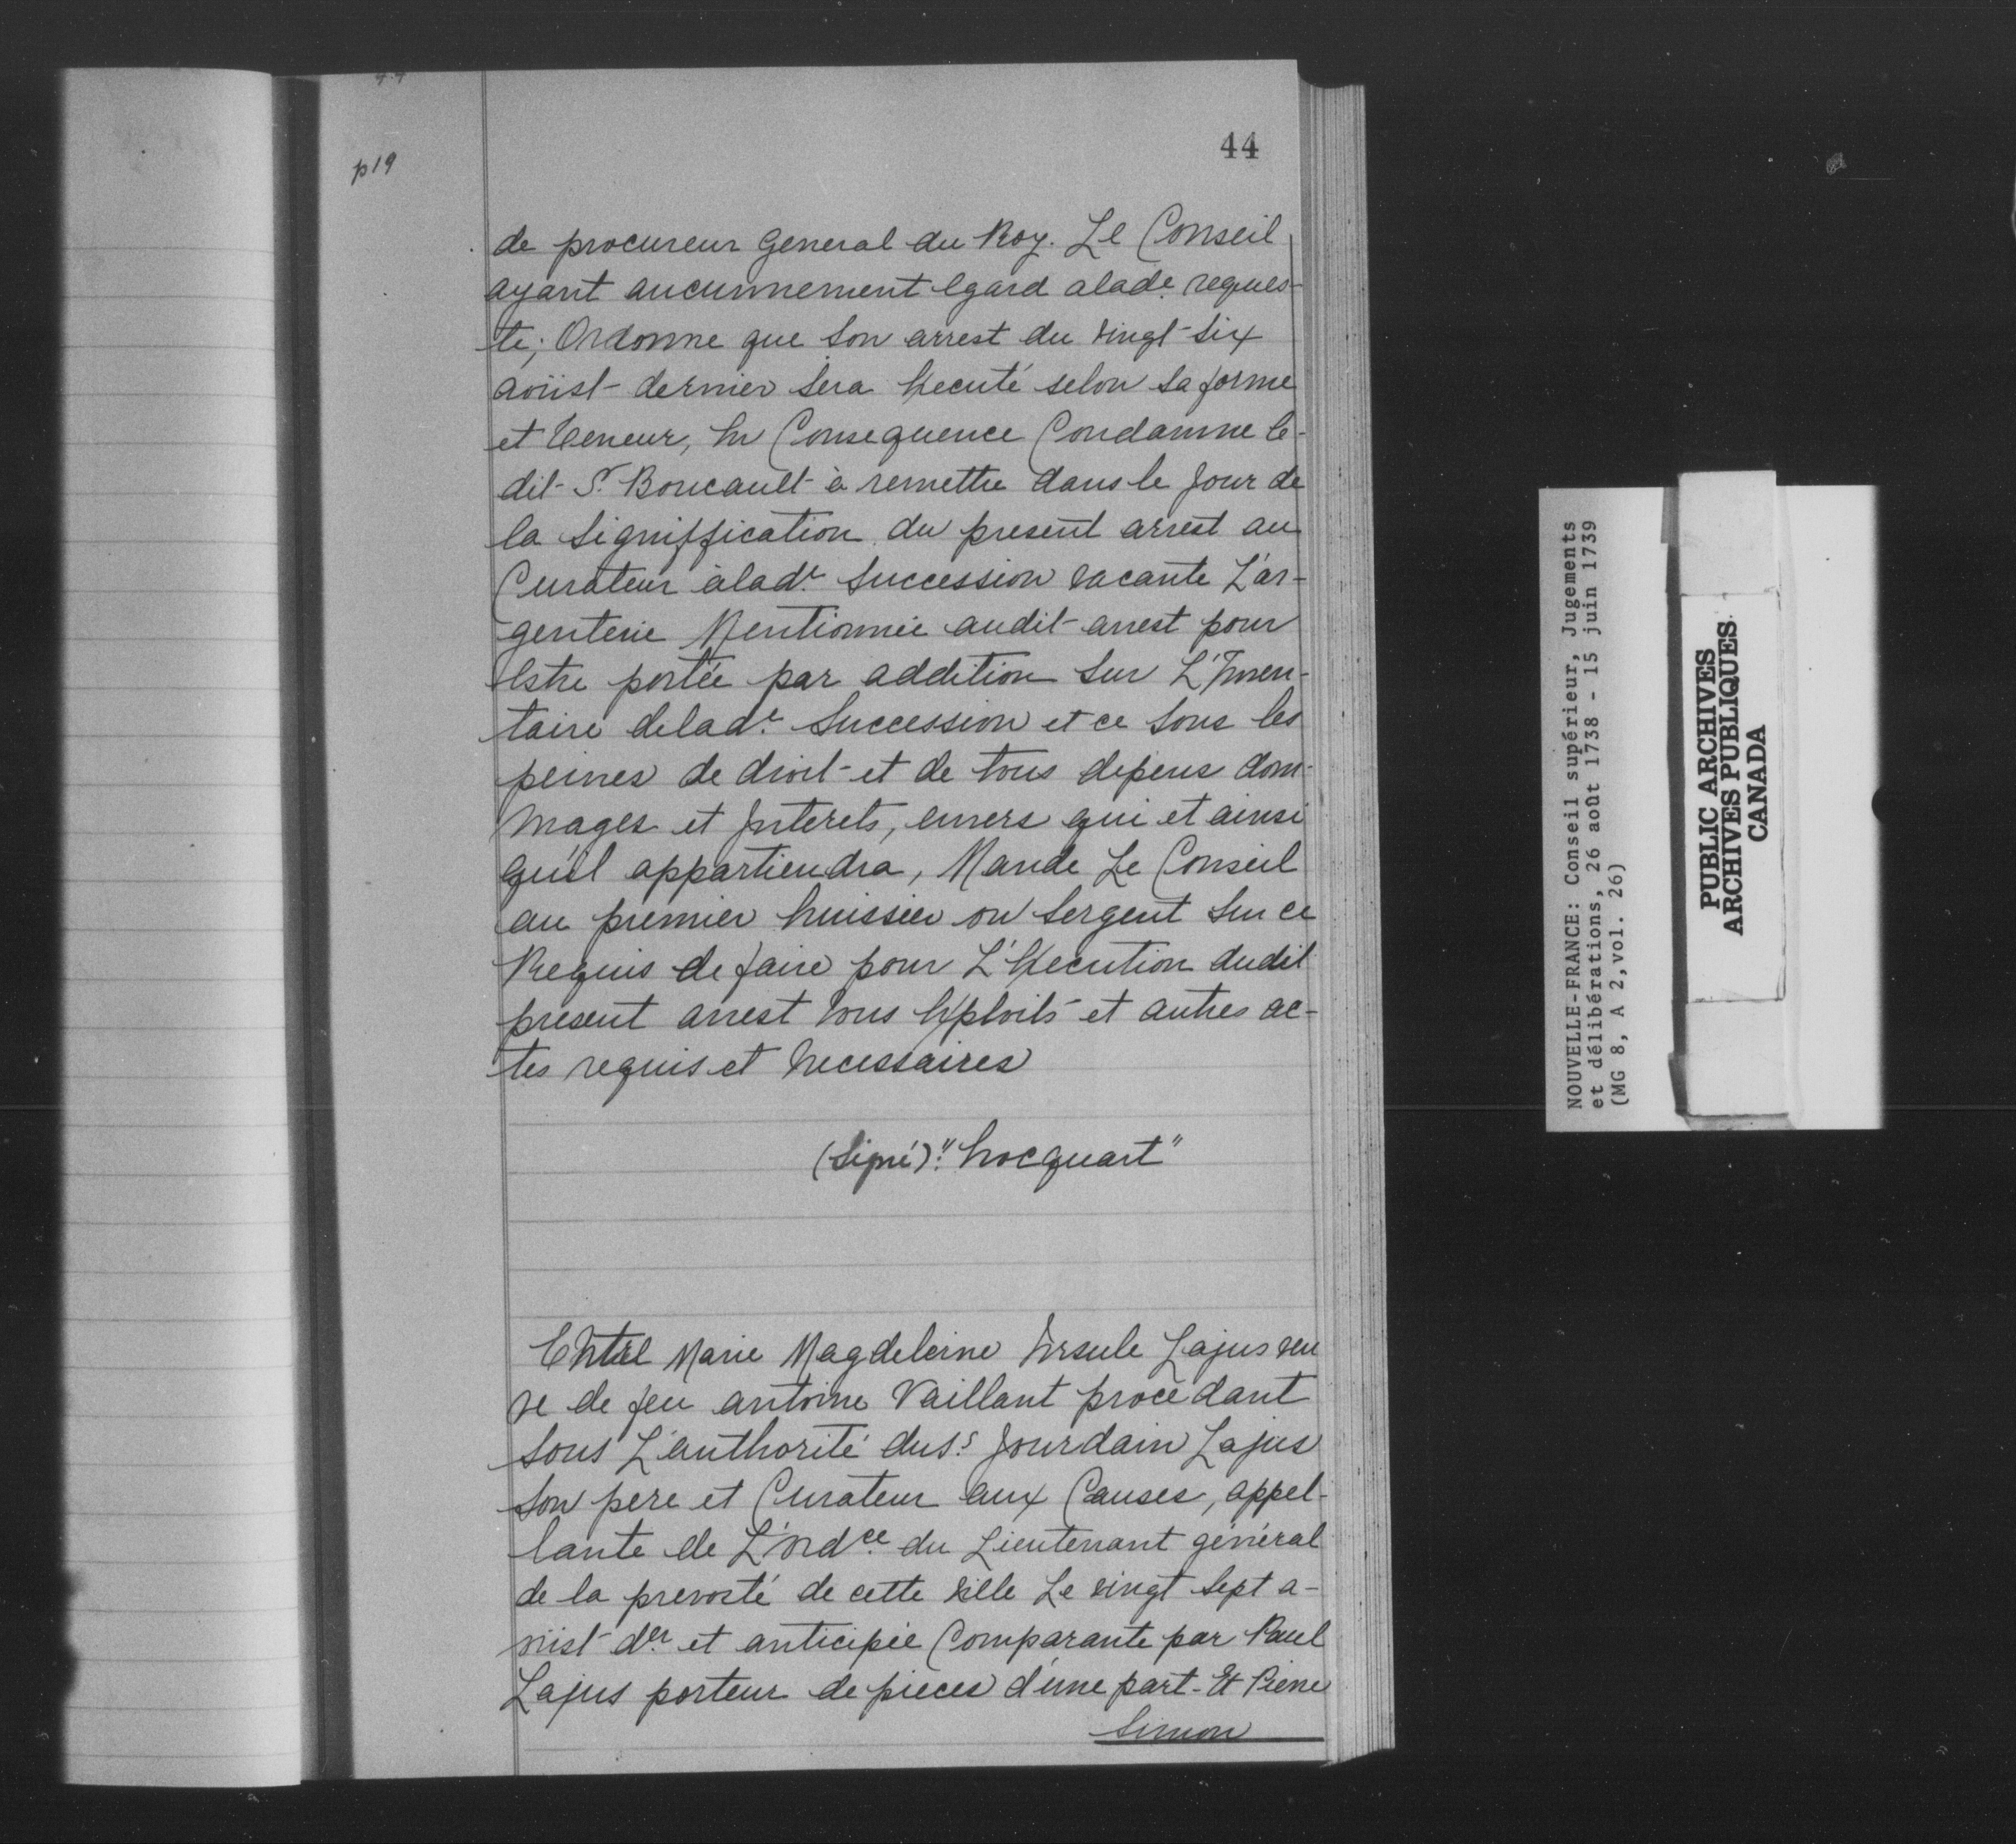 44
p19
de procureur General du Roy. Le Conseil
ayant aucunnement Egard alade. reques-
te; Ordonne que son arrest du vingt-six
aoüst dernier sera Executé selon sa forme
et teneur, En Consequence Condamne le-
dit Sr. Boucault à remettre dans le Jour de
la Signiffication du present arrest au
Curateur àlade. Succession vacante L'ar-
genterie Mentionnée audit arrest pour
Estre portée par addition sur L'Inven-
taire delade. Succession et ce sous les
peines de droit et de tous depens dom-
mages et Interets, envers qui et ainsi
qu'il appartiendra, Mande Le Conseil
au premier huissier ou Sergent sur ce
Requis de faire pour L'Execution dudit
present arrest tous Exploits et autres ac-
tes requis et Necessaires
(Signé): "hocquart"
Entre Marie Magdeleine Ursule Lajus veu
ve de feu antoine Vaillant procèdant
sous L'authorité duS. Jourdain Lajus
son pere et Curateur aux Causes, appel-
lante de L'ordce. du Lieutenant général
de la prevosté de cette ville Le vingt Sept a-
oüst der. et anticipée Comparante par Paul
Lajus porteur de pieces d'une part. Et Pierre
Simon
NOUVELLE-FRANCE: Conseil supérieur, Jugements
et délibérations, 26 août 1738 - 15 juin 1739
(MG 8, A 2,vol. 26)
PUBLIC ARCHIVES
ARCHIVES PUBLIQUES
CANADA